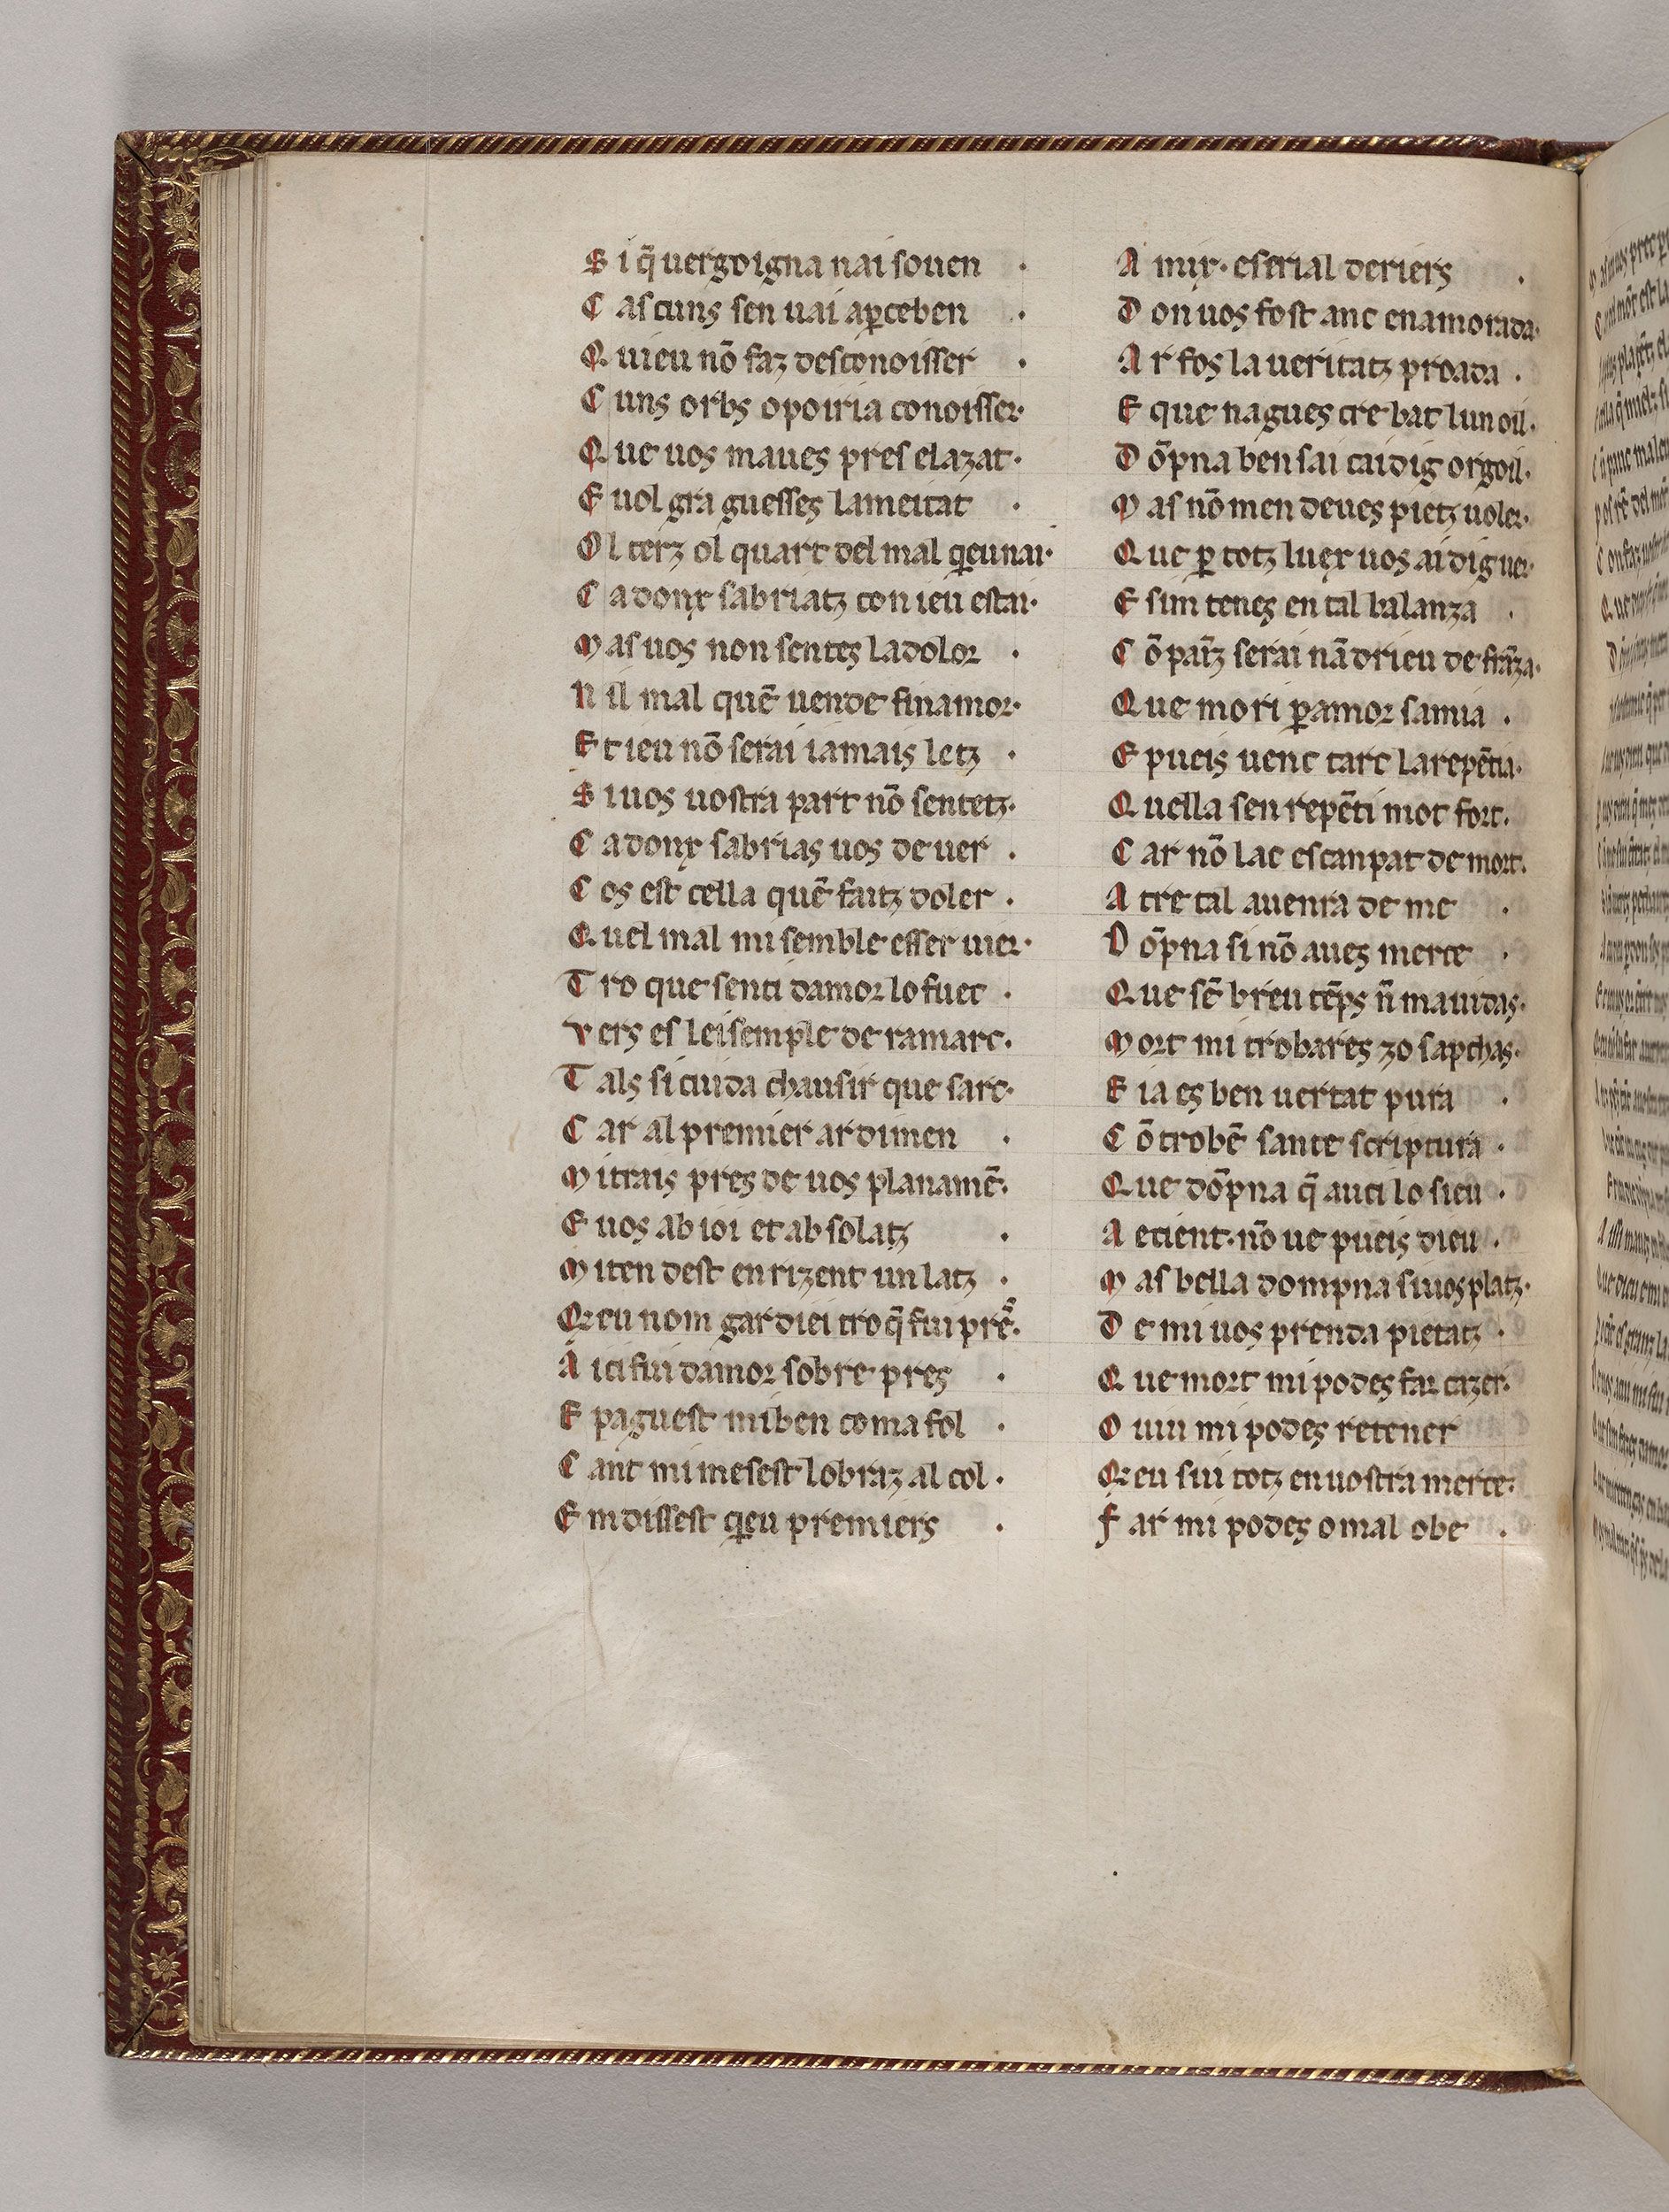 S i q̄ uergoigna nai souen ·
C ascuns sen uai aꝑceben ·
Q uieu nō faz desconoisser ·
C uns orbs o poiria conoisser·
Q ue uos maues pres e lazat·
E uol gra guesses la meitat ·
O l terz ol quart del mal qeu nai·
C a donx sabriatz con ieu estai·
M as uos non sentes la dolor ·
N il mal quē uen de finamor·
E t ieu nō serai iamais letz ·
S i uos uostra part nō sentetz·
C a donx sabrias uos de uer ·
C os est cella quē faitz doler ·
Q uel mal mi semble esser uier·
T ro que senti damor lo fuec ·
V ers es lei semple de ramarc·
T als si cuida chausir que sarc·
C ar al premier ardimen ·
M i trais pres de uos planamē·
E uos ab ioi et ab solatz ·
M i ten dest en rizent un latz ·
Q eu nom gardiei tro q̄ fui prē·
A ici fui damor sobre pres ·
E paguest mi ben coma fol ·
C ant mi mesest lo braz al col ·
E m dissest qeu premiers ·
A mix· e serial deriers ·
D on uos fost anc enamorada·
A r fos la ueritatz proada ·
E que nagues tre bat lun oil·
D ōpna ben sai cai dig orgoil·
M as nō men deues pietz uoler·
Q ue ꝑ totz luex uos ai dig uer·
E sim tenes en tal balanza ·
C ōpaīz serai nādrieu de frāza·
Q ue mori ꝑ amor samia ·
E pueis uenc tart la repētia·
Q uella sen repēti mot fort·
C ar nō lac escanpat de mort·
A tre tal auenra de me ·
D ōpna si nō aues merce ·
Q ue sē breu tēps n̄ maiudas·
M ort mi trobares zo sapchas·
E ia es ben uertat pura ·
C ō trobē sante scriptura ·
Q ue dōpna q̄ auci lo sieu ·
A ecient· nō ue pueis dieu ·
M as bella dompna si uos platz·
D e mi uos prenda pietatz ·
Q ue mort mi podes far cazer·
O uiu mi podes retener
Q eu sui totz en uostra merce·
F ar mi podes o mal o be ·